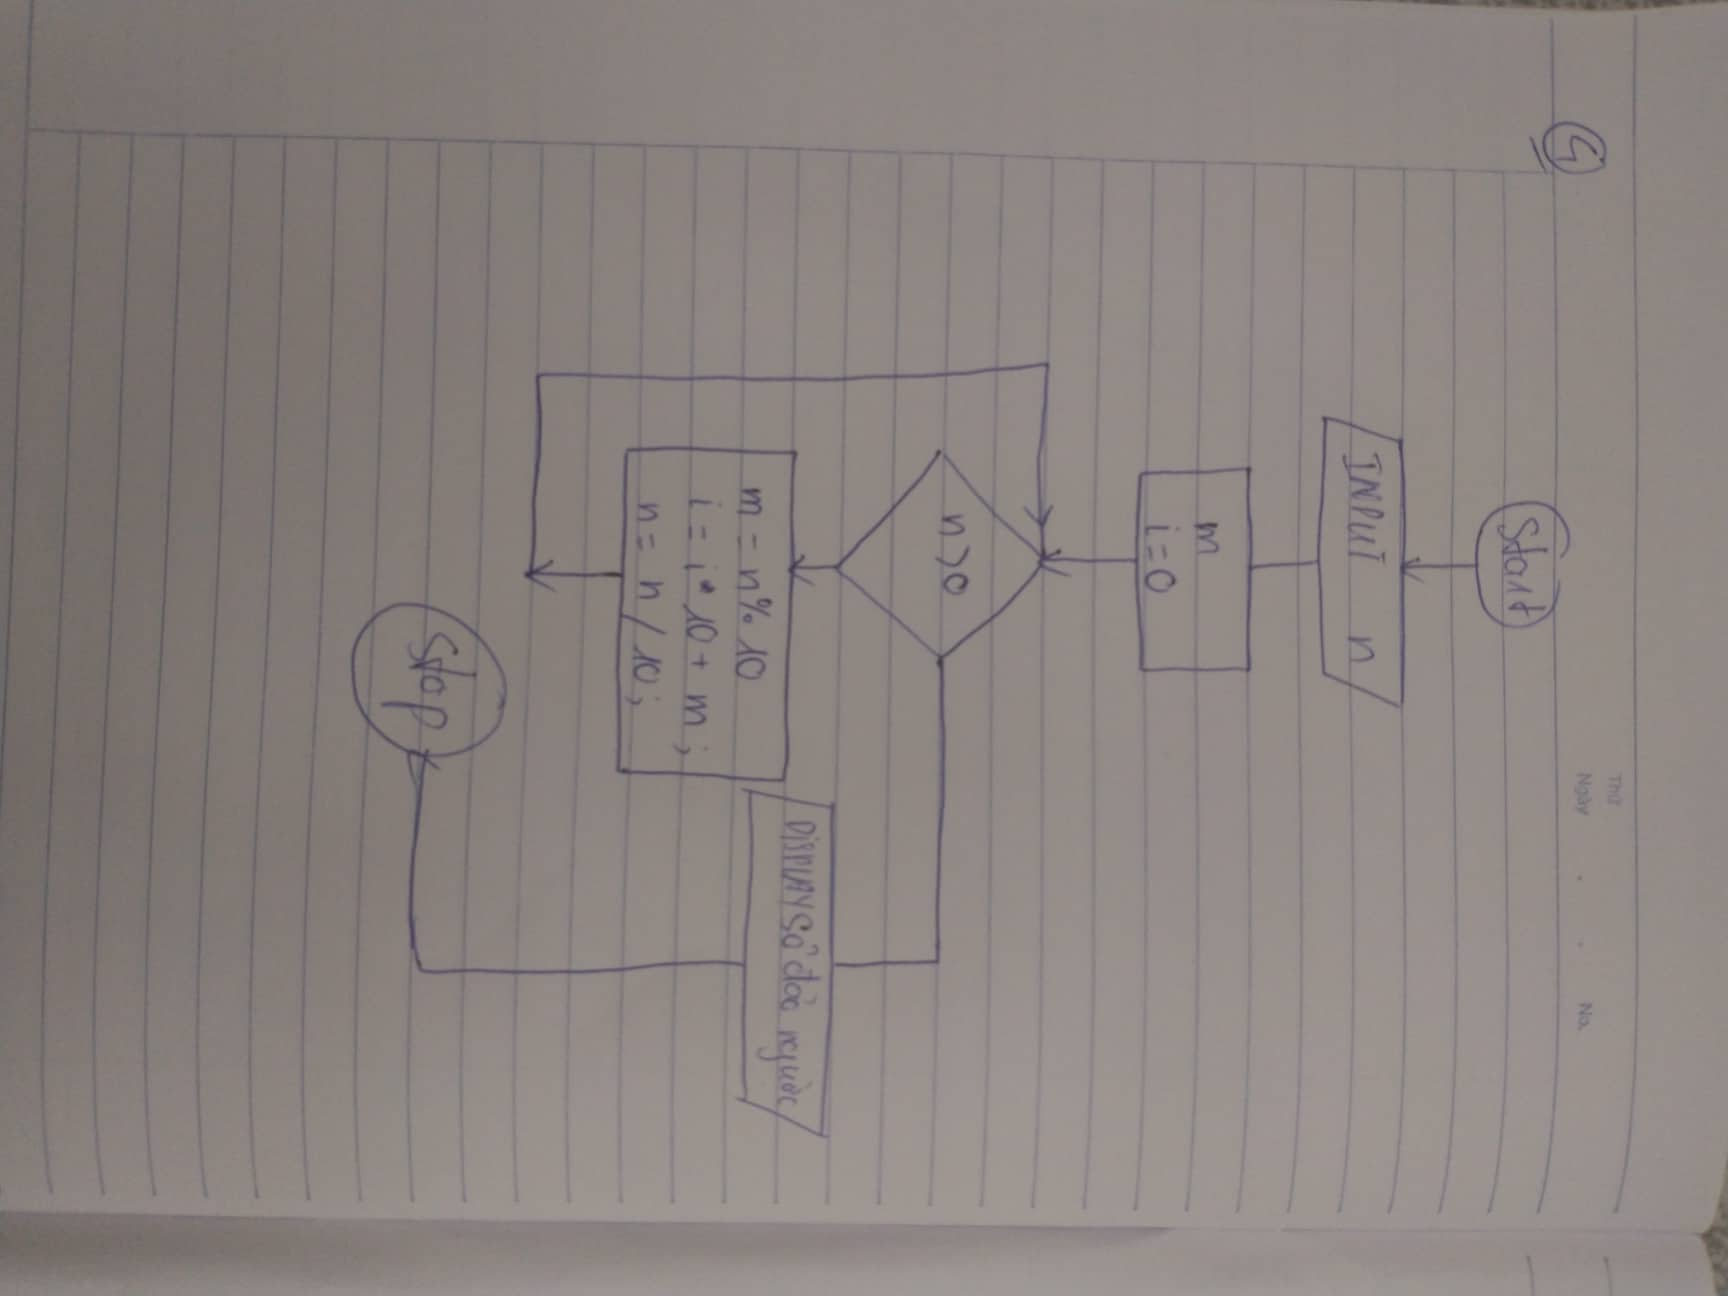 Thứ
Ngày . . No.
4
Start
INPUT n
m
i=0
n>0
m = n%10
i = i*10 + m;
n = n/10;
DISPLAY số đảo ngược
Stop